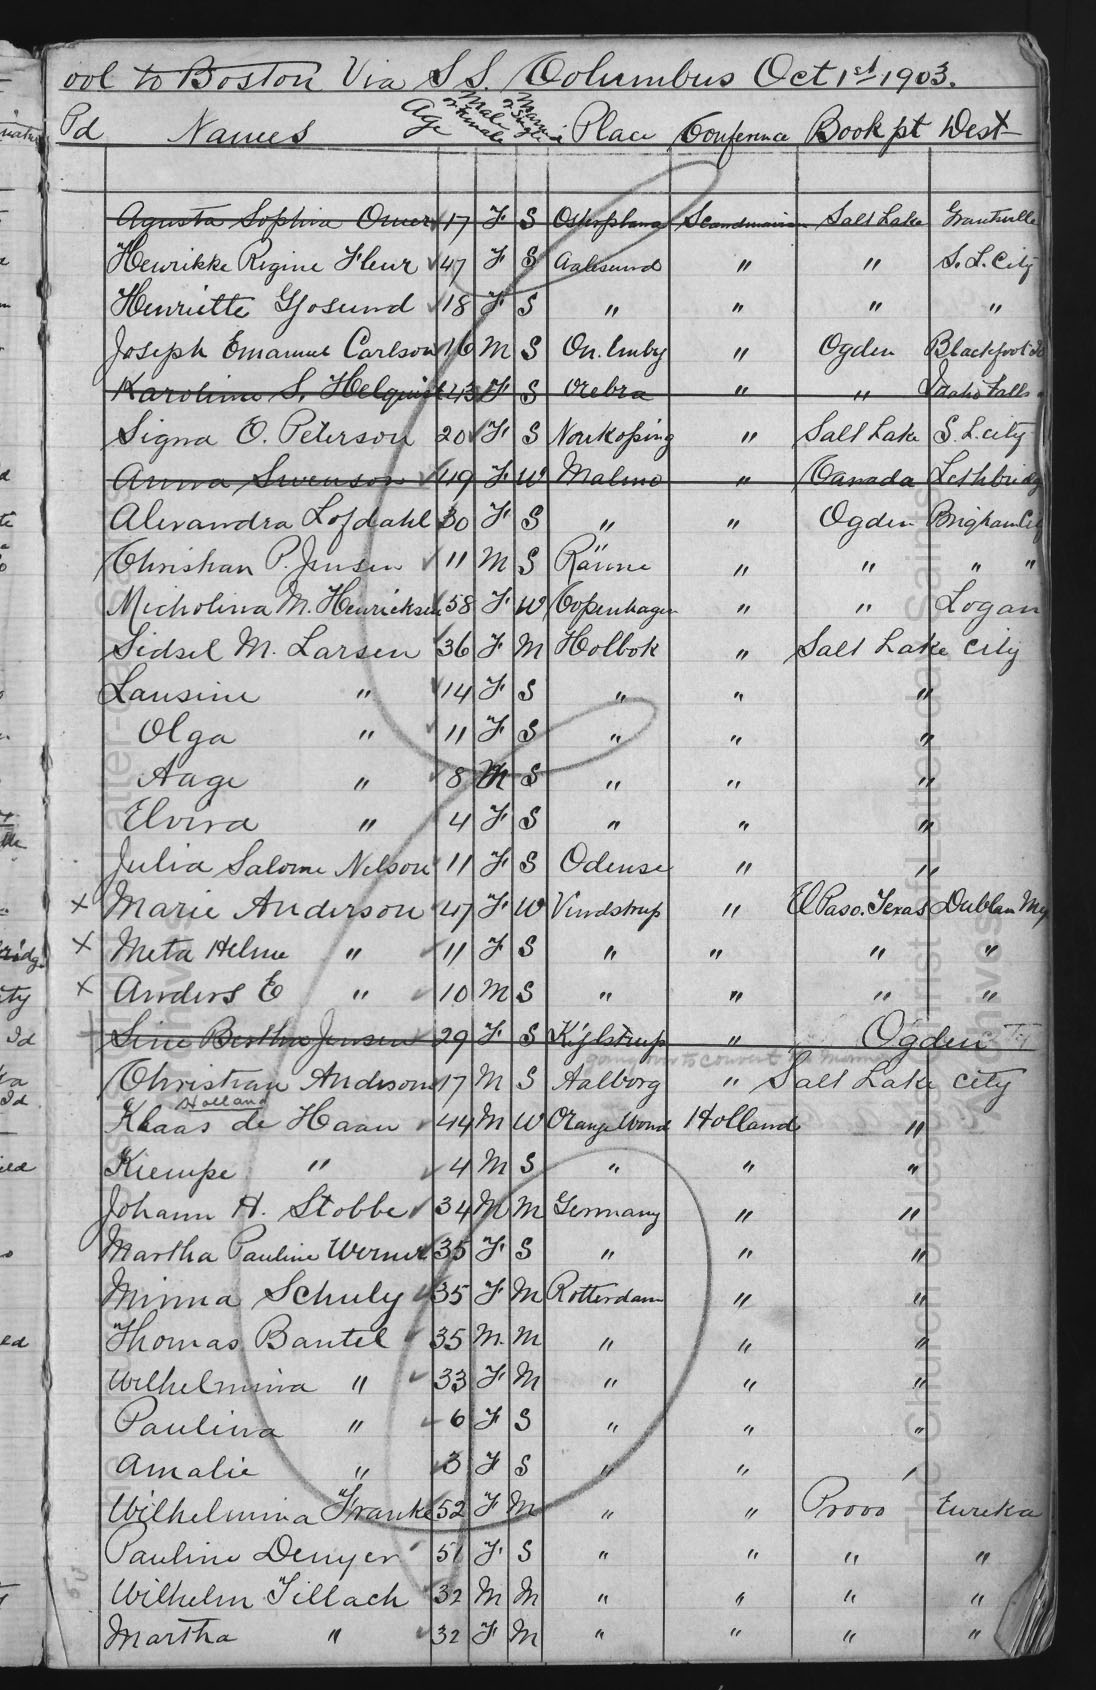 ool to Boston Via S.S. Columbus Oct 1st 1903.
Pd Names Age Male or Female Place Conference Book pt Dest
Agusta Sophia 17 F S Scandinavian Salt Lake Grantsville
Henrikke Regine Fleur 47 F S Aalesund " " S. L. City
Henriette Gjosund 18 F S " " " "
Joseph Emanuel Carlson 16 M S On. Emby " Ogden Blackfoot Id
Karoline S. Helquist 43 F S Orebra " " Idaho Falls
Signa O. Peterson 20 F S Norrkoping " Salt Lake S. L. city
Anna Swenson 49 F W Malmo " Canada Lethbridg
Alexandra Lofdahl 30 F S " " Ogden Brigham City
Christian P. Jensen 11 M S Rönne " " " "
Micholina M. Henricksen 58 F W Copenhagen " " Logan
Sidsel M. Larsen 36 F M Holbok " Salt Lake City
Lausine " 14 F S " " "
Olga " 11 F S " " "
Aage " 8 M S " " "
Elvira " 4 F S " " "
Julia Salome Nelson 11 F S Odense " "
x Marie Anderson 47 F W Vindstrup " El Paso. Texas Dublan Mex
x Meta Helene " 11 F S " " " "
x Anders E " 10 M S " " " "
x Sine Bertha Jensen 29 F S " Ogden
going over to convert the Mormons
Christian Anderson 17 M S Aalborg " Salt Lake city
Holland
Klaas de Haan 44 M W Orange Wond Holland "
Kiempe " 4 M S " " "
Johann H. Stobbe 34 M M Germany " "
Martha Pauline Werner 35 F S " " "
Minna Schuly 35 F M Rotterdam " "
Thomas Bantel 35 M M " " "
Wilhelmina " 33 F M " " "
Paulina " 6 F S " " "
Amalie " 3 F S " " "
Wilhelmina Franke 52 F M " " Provo Eureka
Pauline Denyer 51 F S " " " "
Wilhelm Tillach 32 M M " " " "
Martha " 32 F M " " " "